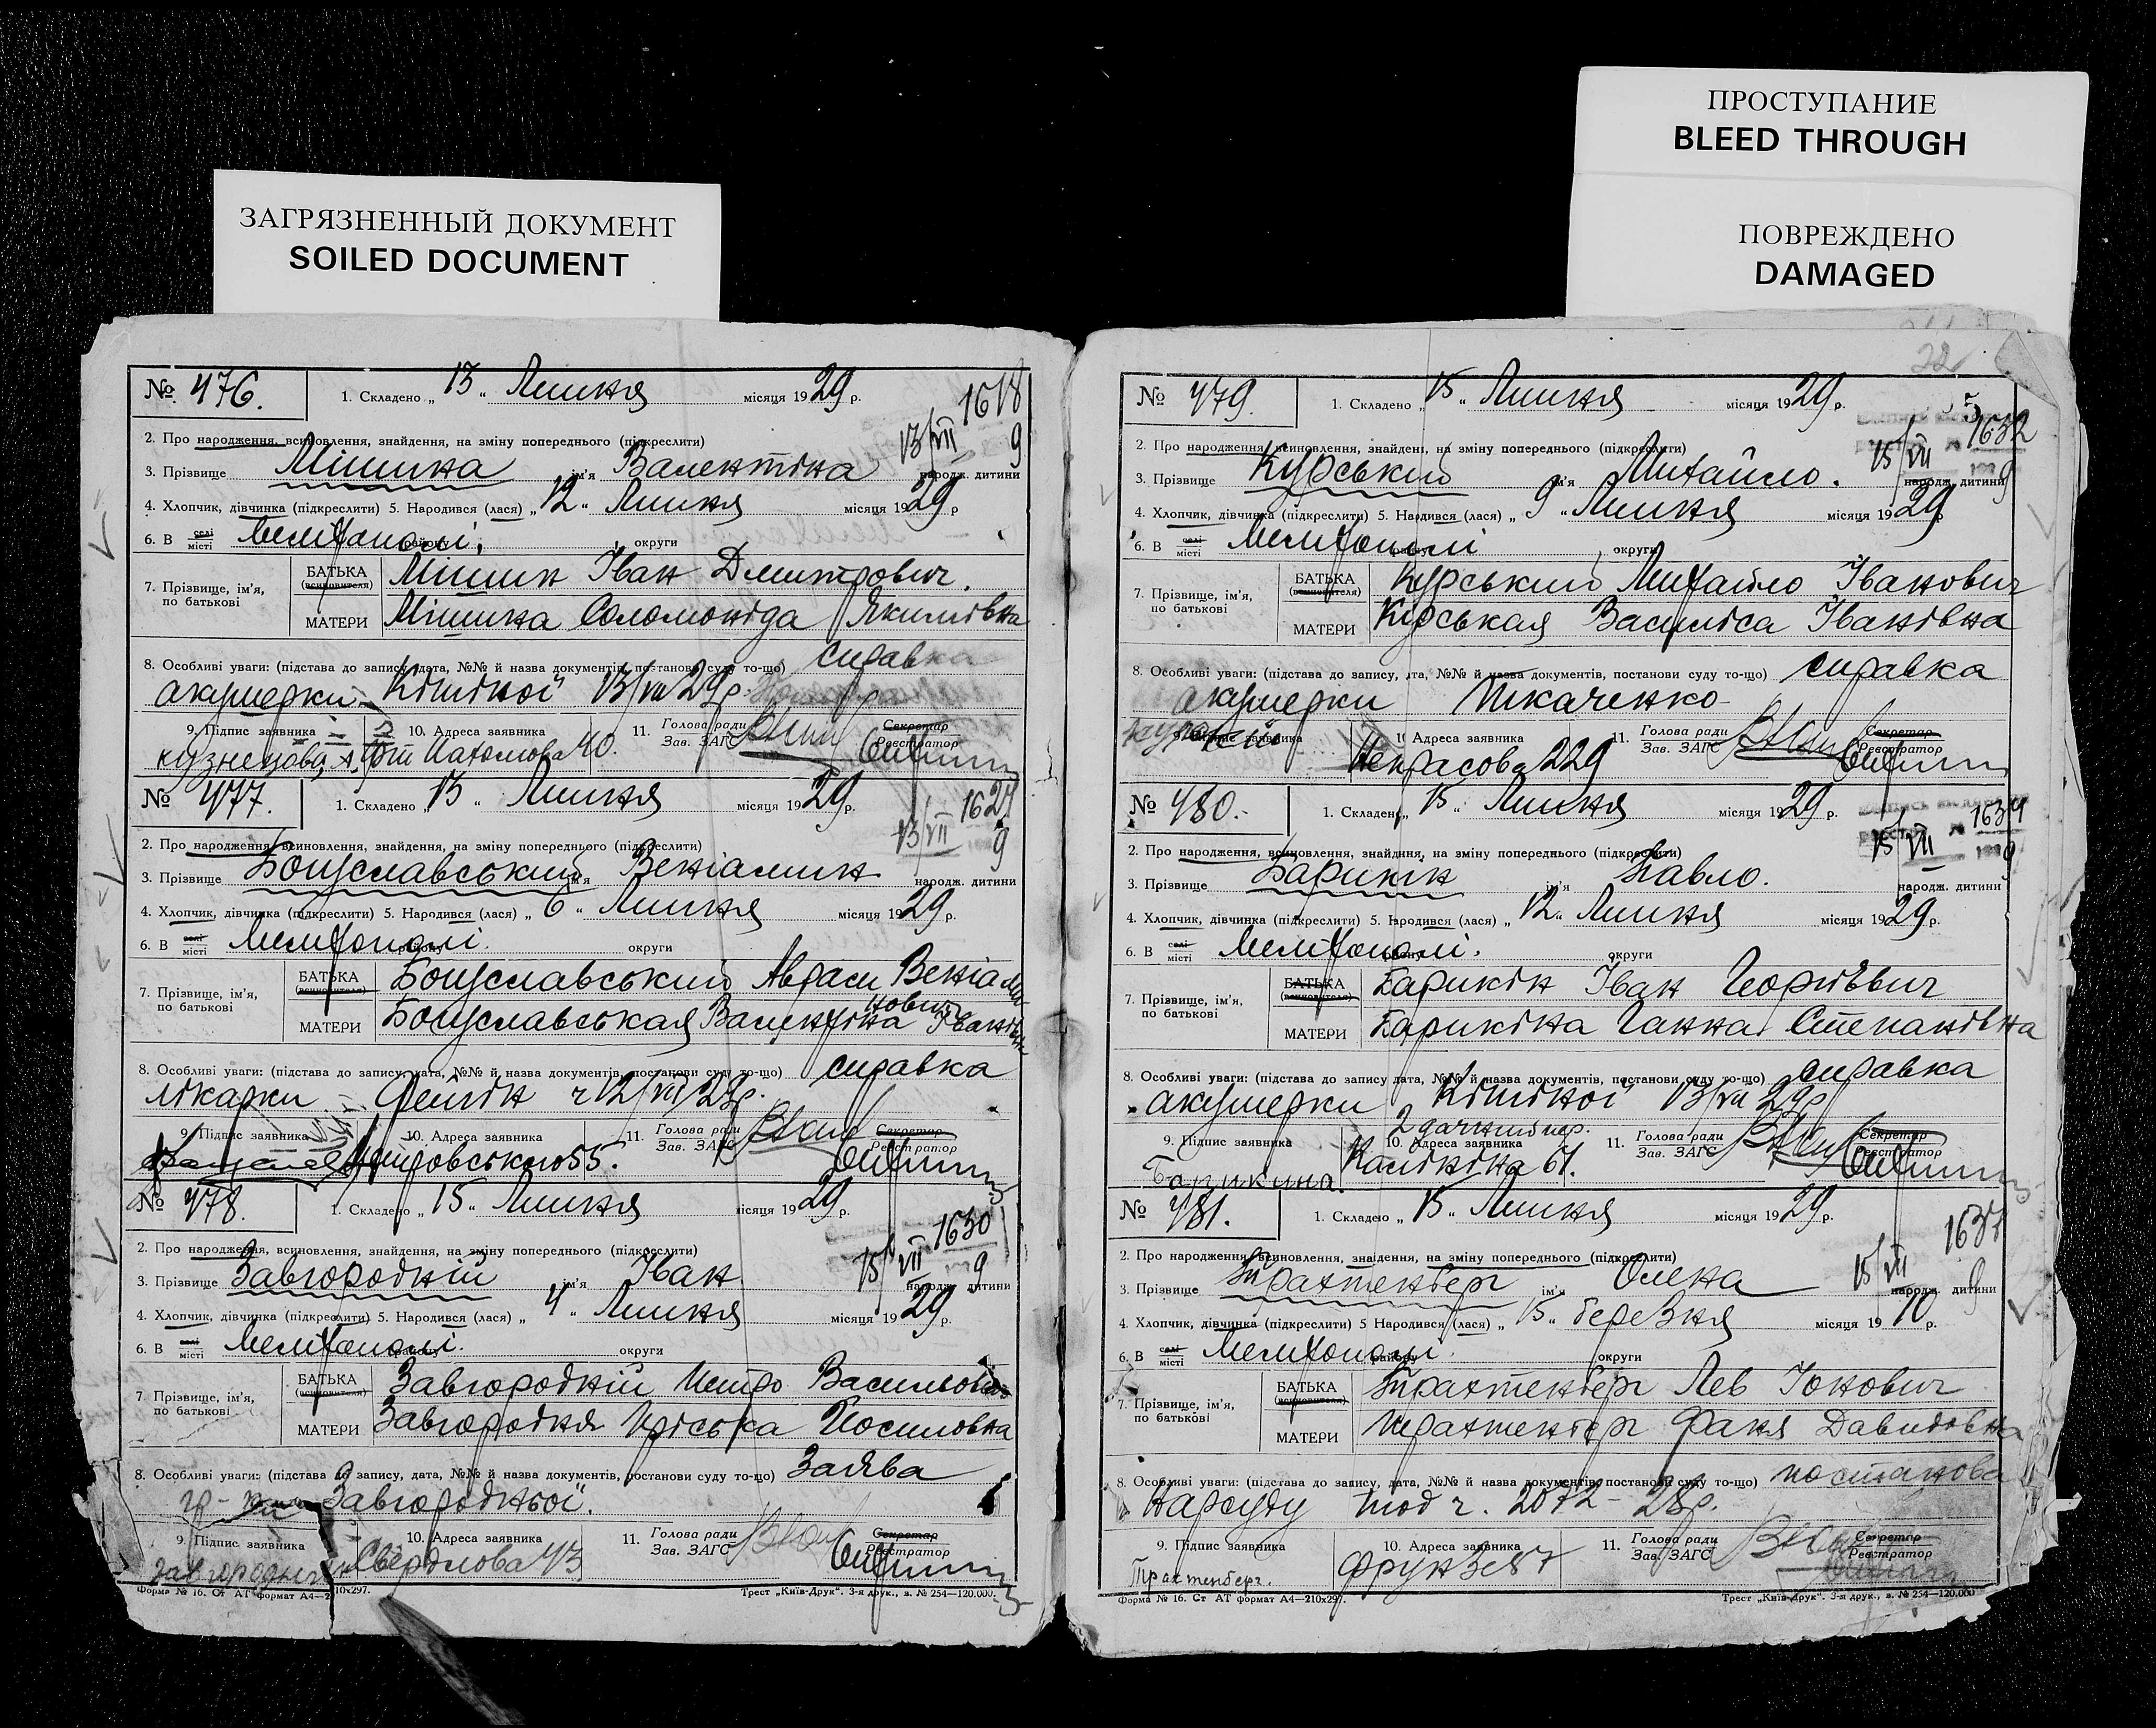 ЗАГРЯЗНЕННЫЙ ДОКУМЕНТ
SOILED DOCUMENT
ПРОСТУПАНИЕ
BLEED THROUGH
ПОВРЕЖДЕНО
DAMAGED
№ 476. 1. Складено „ 13 “ Липня місяця 1929 р.
1618
13/VII 9
2. Про народження, всиновлення, знайдення, на зміну попереднього (підкреслити)
3. Прізвище Мішина ім'я Валентіна народж. дитини
4. Хлопчик, дівчинка (підкреслити) 5. Народився (лася) „ 12 “ Липня місяця 1929 р
6. В селі місті Мелітополі, району округи
7. Прізвище, ім'я, по батькові БАТЬКА (всиновителя) Мішин Іван Дмитрович.
МАТЕРИ Мішина Соломоніда Якимівна
8. Особливі уваги: (підстава до запису, дата, №№ й назва документів, постанови суду то-що) справка
акушерки Кітікої 13/VII 29р.
9. Підпис заявника 10. Адреса заявника 11. Голова ради Зав. ЗАГС Секретар Реєстратор
Кузнецова А. 40.
№ 477. 1. Складено „ 13 “ Липня місяця 1929 р.
13/VII 9
2. Про народження, всиновлення, знайдення, на зміну попереднього (підкреслити)
3. Прізвище Богуславський ім'я Веніамин народж. дитини
4. Хлопчик, дівчинка (підкреслити) 5. Народився (лася) „ 6 “ Липня місяця 1929 р.
6. В селі місті Мелітополі. району округи
7. Прізвище, ім'я, по батькові БАТЬКА (всиновителя) Богуславський Абрам Веніами
нович
МАТЕРИ Богуславськая Валентіна Іванівна
8. Особливі уваги: (підстава до запису, дата, №№ й назва документів, постанови суду то-що) справка
лікарки Фейгін ч 12/VII 29р.
9. Підпис заявника 10. Адреса заявника 11. Голова ради Зав. ЗАГС Секретар Реєстратор
55.
№ 478. 1. Складено „ 15 “ Липня місяця 1929 р.
1630
15/VII 9
2. Про народження, всиновлення, знайдення, на зміну попереднього (підкреслити)
3. Прізвище Завгородній ім'я Іван народж. дитини
4. Хлопчик, дівчинка (підкреслити) 5. Народився (лася) „ 4 “ Липня місяця 1929 р.
6. В селі місті Мелітополі. району округи
7. Прізвище, ім'я, по батькові БАТЬКА (всиновителя) Завгородній Петро Васильович
МАТЕРИ Завгородня Пріська Йосиповна
8. Особливі уваги: (підстава до запису, дата, №№ й назва документів, постанови суду то-що) Заява
гр-ки Завгородньої.
9. Підпис заявника 10. Адреса заявника 11. Голова ради Зав. ЗАГС Секретар Реєстратор
Свердлова 43
Форма № 16. Ст АТ формат А4—210х297. Трест „Київ-Друк“. 3-я друк., з. № 254—120.000.
22
№ 479. 1. Складено „ 15 “ Липня місяця 1929 р.
1632
15/VII 9
2. Про народження, всиновлення, знайдені, на зміну попереднього (підкреслити)
3. Прізвище Курський ім'я Михайло. народж. дитини
4. Хлопчик, дівчинка (підкреслити) 5. Народився (лася) „ 9 “ Липня місяця 1929
6. В селі місті Мелітополі району округи
7. Прізвище, ім'я, по батькові БАТЬКА (всиновителя) Курський Михайло Іванович
МАТЕРИ Курськая Василіса Іванівна
8. Особливі уваги: (підстава до запису, дата, №№ й назва документів, постанови суду то-що) справка
акушерки Ткаченко
9. Підпис заявника 10. Адреса заявника 11. Голова ради Зав. ЗАГС Секретар Реєстратор
Некрасова 229
№ 480. 1. Складено „ 15 “ Липня місяця 1929 р.
1634
15/VII 9
2. Про народження, всиновлення, знайдіння, на зміну попереднього (підкреслити)
3. Прізвище Барикін ім'я Павло. народж. дитини
4. Хлопчик, дівчинка (підкреслити) 5. Народився (лася) „ 12 “ Липня місяця 1929 р.
6. В селі місті Мелітополі. району округи
7. Прізвище, ім'я, по батькові БАТЬКА (всиновителя) Барикін Іван Георгієвич
МАТЕРИ Барикіна Ганна Степанівна
8. Особливі уваги: (підстава до запису дата, №№ й назва документів, постанови суду то-що) справка
акушерки Кітікої 13/VII 29р
9. Підпис заявника 10. Адреса заявника 11. Голова ради Зав. ЗАГС Секретар Реєстратор
Барикина. Калініна 61.
№ 481. 1. Складено „ 15 “ Липня місяця 1929 р.
1637
15/VII 9
2. Про народження, всиновлення, знайдення, на зміну попереднього (підкреслити)
3. Прізвище Трахтенберг ім'я Олена народж. дитини
4. Хлопчик, дівчинка (підкреслити) 5 Народився (лася) „ 15 “ березня місяця 1910 р.
6. В селі місті Мелітополі. району округи
7. Прізвище, ім'я, по батькові БАТЬКА (всиновителя) Трахтенберг Лев Іонович
МАТЕРИ Трахтенберг Фаня Давидовна
8. Особливі уваги: (підстава до запису, дата, №№ й назва документів, постанови суду то-що) постанова
Нарсуду ч. 2072 - 28р.
9. Підпис заявника 10. Адреса заявника 11. Голова ради Зав. ЗАГС Секретар Реєстратор
Трахтенберг. Фрунзе 87
Форма № 16. Ст АТ формат А4—210х297. Трест „Київ-Друк“. 3-я друк., з. № 254—120.000